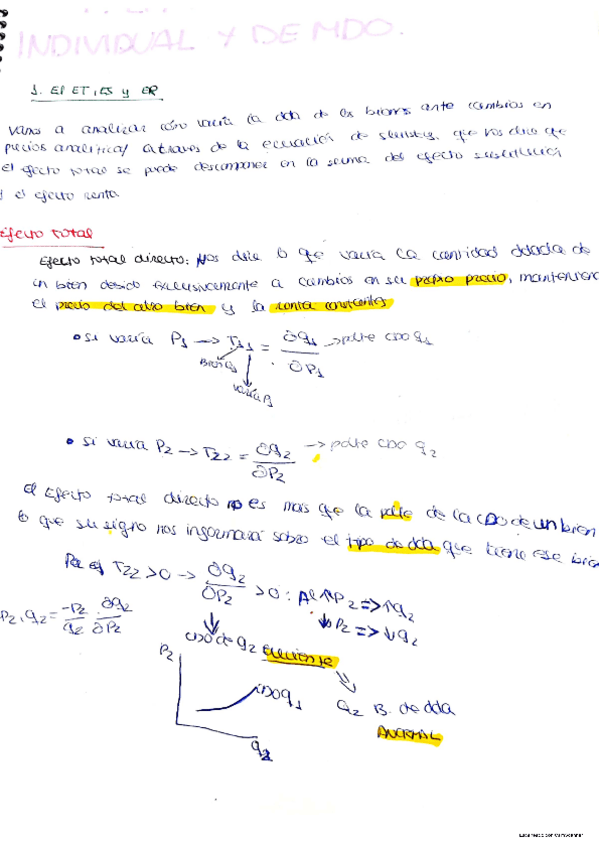 INDIVIDUAL Y DE MDO.
1. El ET, ES y ER
Vamos a analizar cómo varía la dda de los bienes ante cambios en
precios analítica/ através de la ecuación de slutsky, que nos dice que
el efecto total se puede descomponer en la suma del efecto sustitución
y el efecto renta.
Efecto total
Efecto total directo: Nos dice lo que varía la cantidad ddada de
un bien debido exclusivamente a cambios en su propio precio, manteniendo
el precio del otro bien y la renta constantes
• si varía P₁ → T₁₁ = ∂q₁/∂P₁ → pdte CDO q₁
Bien q₁
varía P₁
• si varía P₂ → T₂₂ = ∂q₂/∂P₂ → pdte CDO q₂
El efecto total directo no es más que la pdte de la CDO de un bien
lo que su signo nos informará sobre el tipo de dda que tiene ese bien
Por ej T₂₂ > 0 → ∂q₂/∂P₂ > 0 : Al ↑P₂ => ↑q₂
↓P₂ => ↓q₂
P₂,q₂ = -P₂/q₂ ∂q₂/∂P₂
CDO de q₂ creciente
P₂
CDO q₁
q₂
q₂ B. de dda
ANORMAL